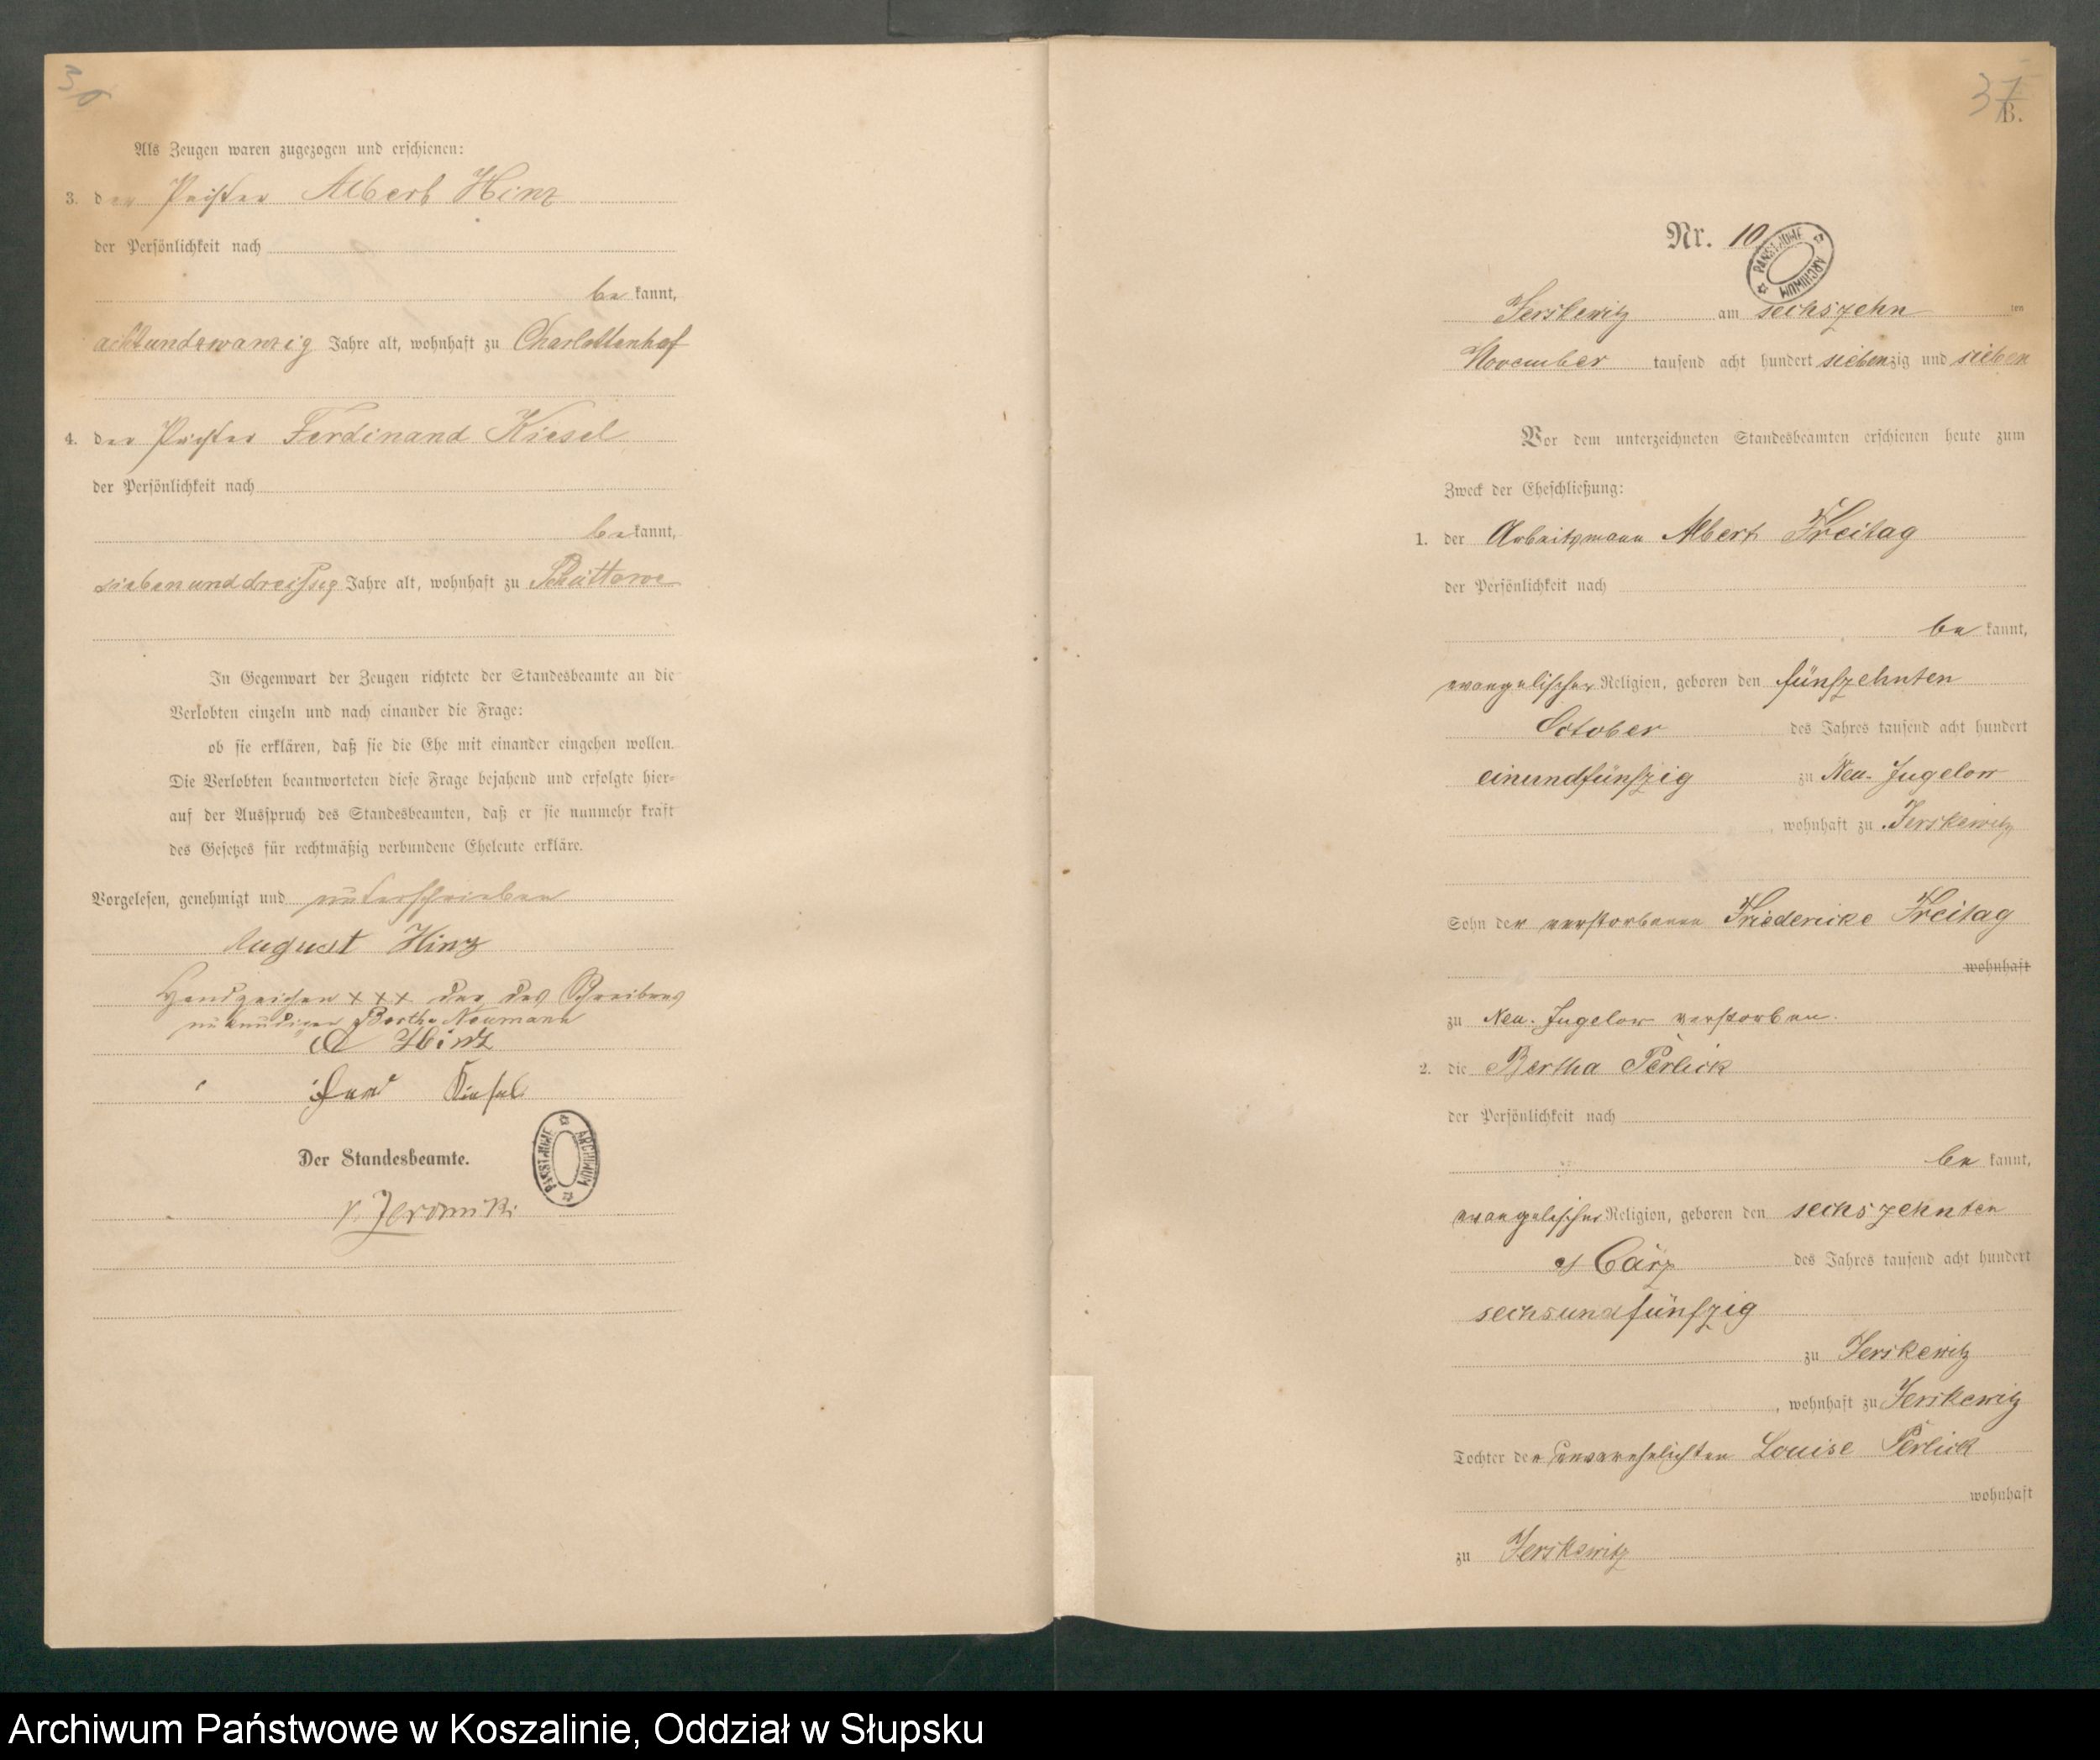 30
Als Zeugen waren zugezogen und erschienen:
3. der Pächter Albert Hinz
der Persönlichkeit nach
be kannt,
achtundzwanzig Jahre alt, wohnhaft zu Charlottenhof
4. der Pächter Ferdinand Kiesel
der Persönlichkeit nach
be kannt,
siebenunddreißig Jahre alt, wohnhaft zu
In Gegenwart der Zeugen richtete der Standesbeamte an die
Verlobten einzeln und nach einander die Frage:
ob sie erklären, daß sie die Ehe mit einander eingehen wollen.
Die Verlobten beantworteten diese Frage bejahend und erfolgte hier-
auf der Ausspruch des Standesbeamten, daß er sie nunmehr kraft
des Gesetzes für rechtmäßig verbundene Eheleute erkläre.
Vorgelesen, genehmigt und unterschrieben
August Hinz
Handzeichen xxx der des Schreibens
unkundigen Bertha Neumann
A Hintz
Ferd Kiesel
Der Standesbeamte.
PAŃSTWOWE ARCHIWUM
37
B.
Nr. 10
PAŃSTWOWE ARCHIWUM
Jerskewitz am sechszehn ten
November tausend acht hundert siebenzig und sieben
Vor dem unterzeichneten Standesbeamten erschienen heute zum
Zweck der Eheschließung:
1. der Arbeitsmann Albert Freitag
der Persönlichkeit nach
be kannt,
evangelischer Religion, geboren den fünfzehnten
October des Jahres tausend acht hundert
einundfünfzig zu Neu-Jugelow
, wohnhaft zu Jerskewitz
Sohn der verstorbenen Friedericke Freitag
wohnhaft
zu Neu-Jugelow verstorben.
2. die Bertha Perlick
der Persönlichkeit nach
be kannt,
evangelischer Religion, geboren den sechszehnten
März des Jahres tausend acht hundert
sechsundfünfzig
zu Jerskewitz
, wohnhaft zu Jerskewitz
Tochter der unverehelichten Louise Perlick
wohnhaft
zu Jerskewitz
Archiwum Państwowe w Koszalinie, Oddział w Słupsku